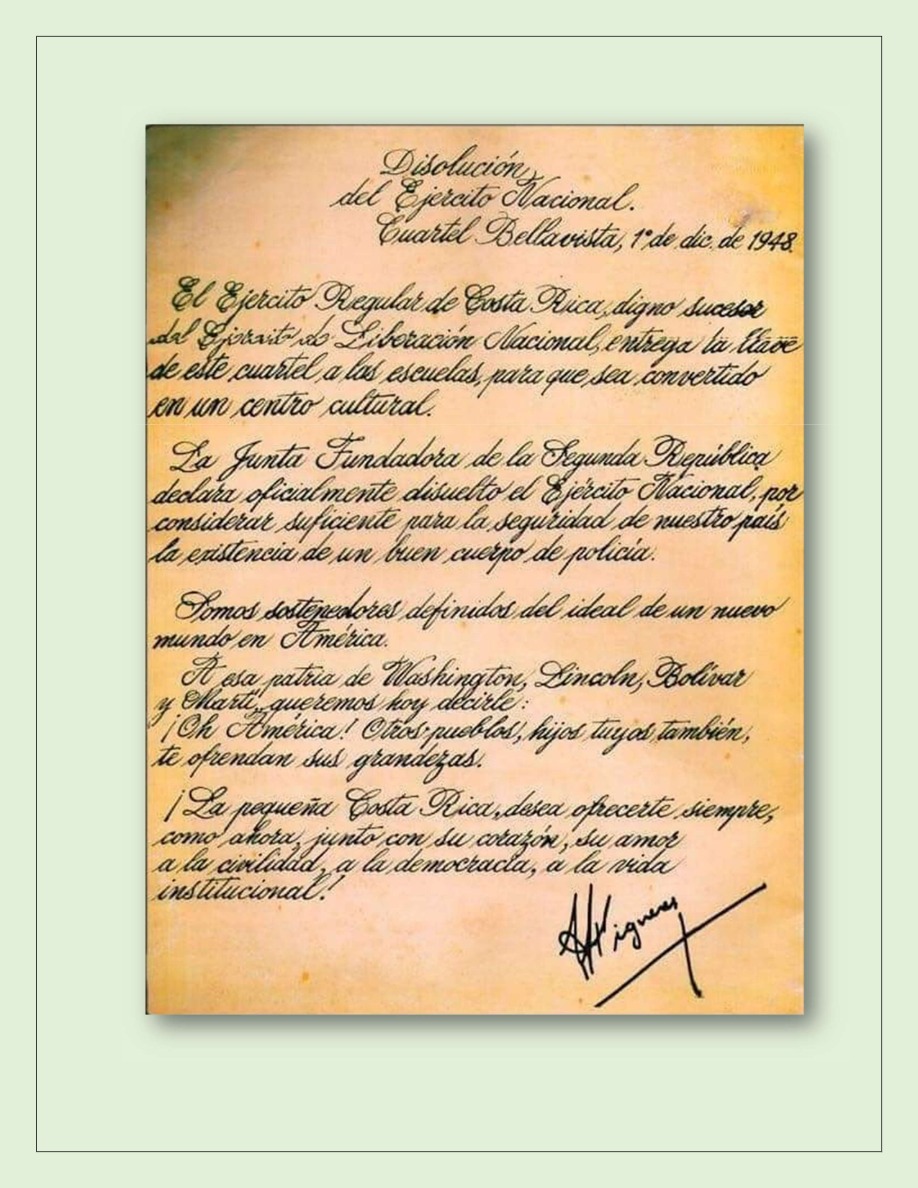 Disolución
del Ejército Nacional.
Cuartel Bellavista, 1° de dic. de 1948.
El Ejército Regular de Costa Rica, digno sucesor
del Ejército de Liberación Nacional, entrega la llave
de este cuartel a las escuelas, para que sea convertido
en un centro cultural.
La Junta Fundadora de la Segunda República
declara oficialmente disuelto el Ejército Nacional, por
considerar suficiente para la seguridad de nuestro país
la existencia de un buen cuerpo de policía.
Somos sostenedores definidos del ideal de un nuevo
mundo en América.
A esa patria de Washington, Lincoln, Bolívar
y Martí, queremos hoy decirle:
¡Oh América! Otros pueblos, hijos tuyos también,
te ofrendan sus grandezas.
¡La pequeña Costa Rica, desea ofrecerte siempre,
como ahora, junto con su corazón, su amor
a la civilidad, a la democracia, a la vida
institucional!
Figueres